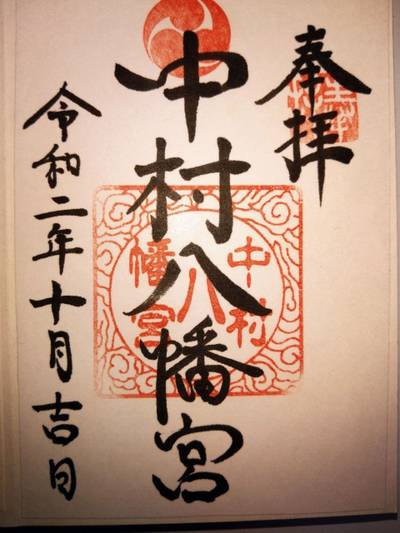 奉拝
中村八幡宮
令和二年十月吉日
中村
八
幡宮